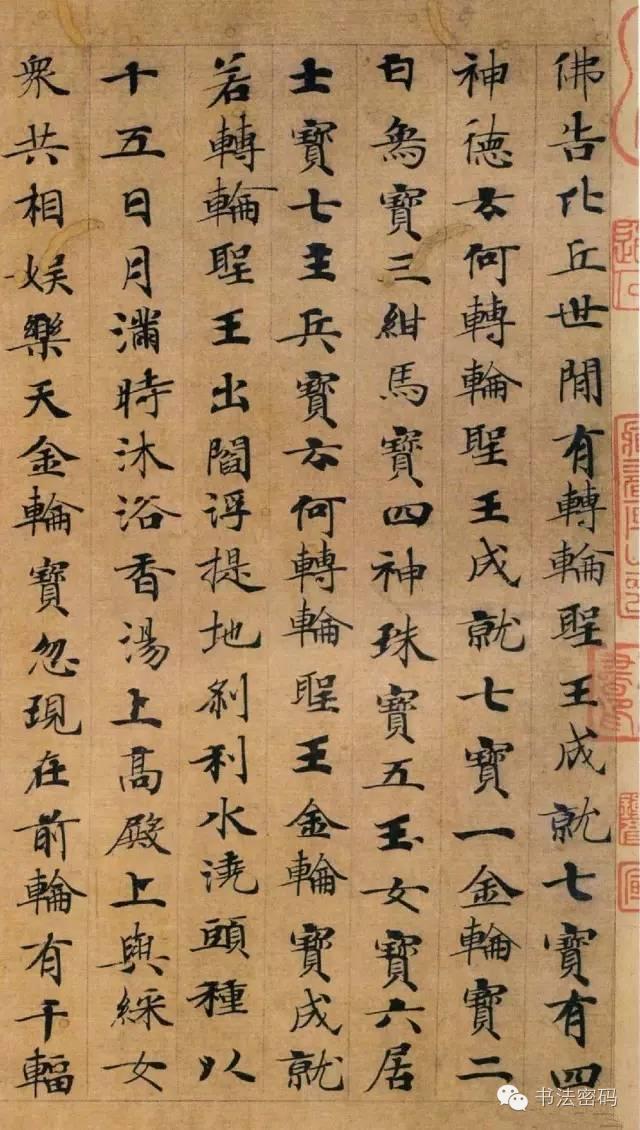 佛告比丘世間有轉輪聖王成就七寶有四
神德云何轉輪聖王成就七寶一金輪寶二
白象寶三紺馬寶四神珠寶五玉女寶六居
士寶七主兵寶云何轉輪聖王金輪寶成就
若轉輪聖王出閻浮提地剎利水澆頭種以
十五日月滿時沐浴香湯上高殿上與綵女
衆共相娛樂天金輪寶忽現在前輪有千輻
书法密码